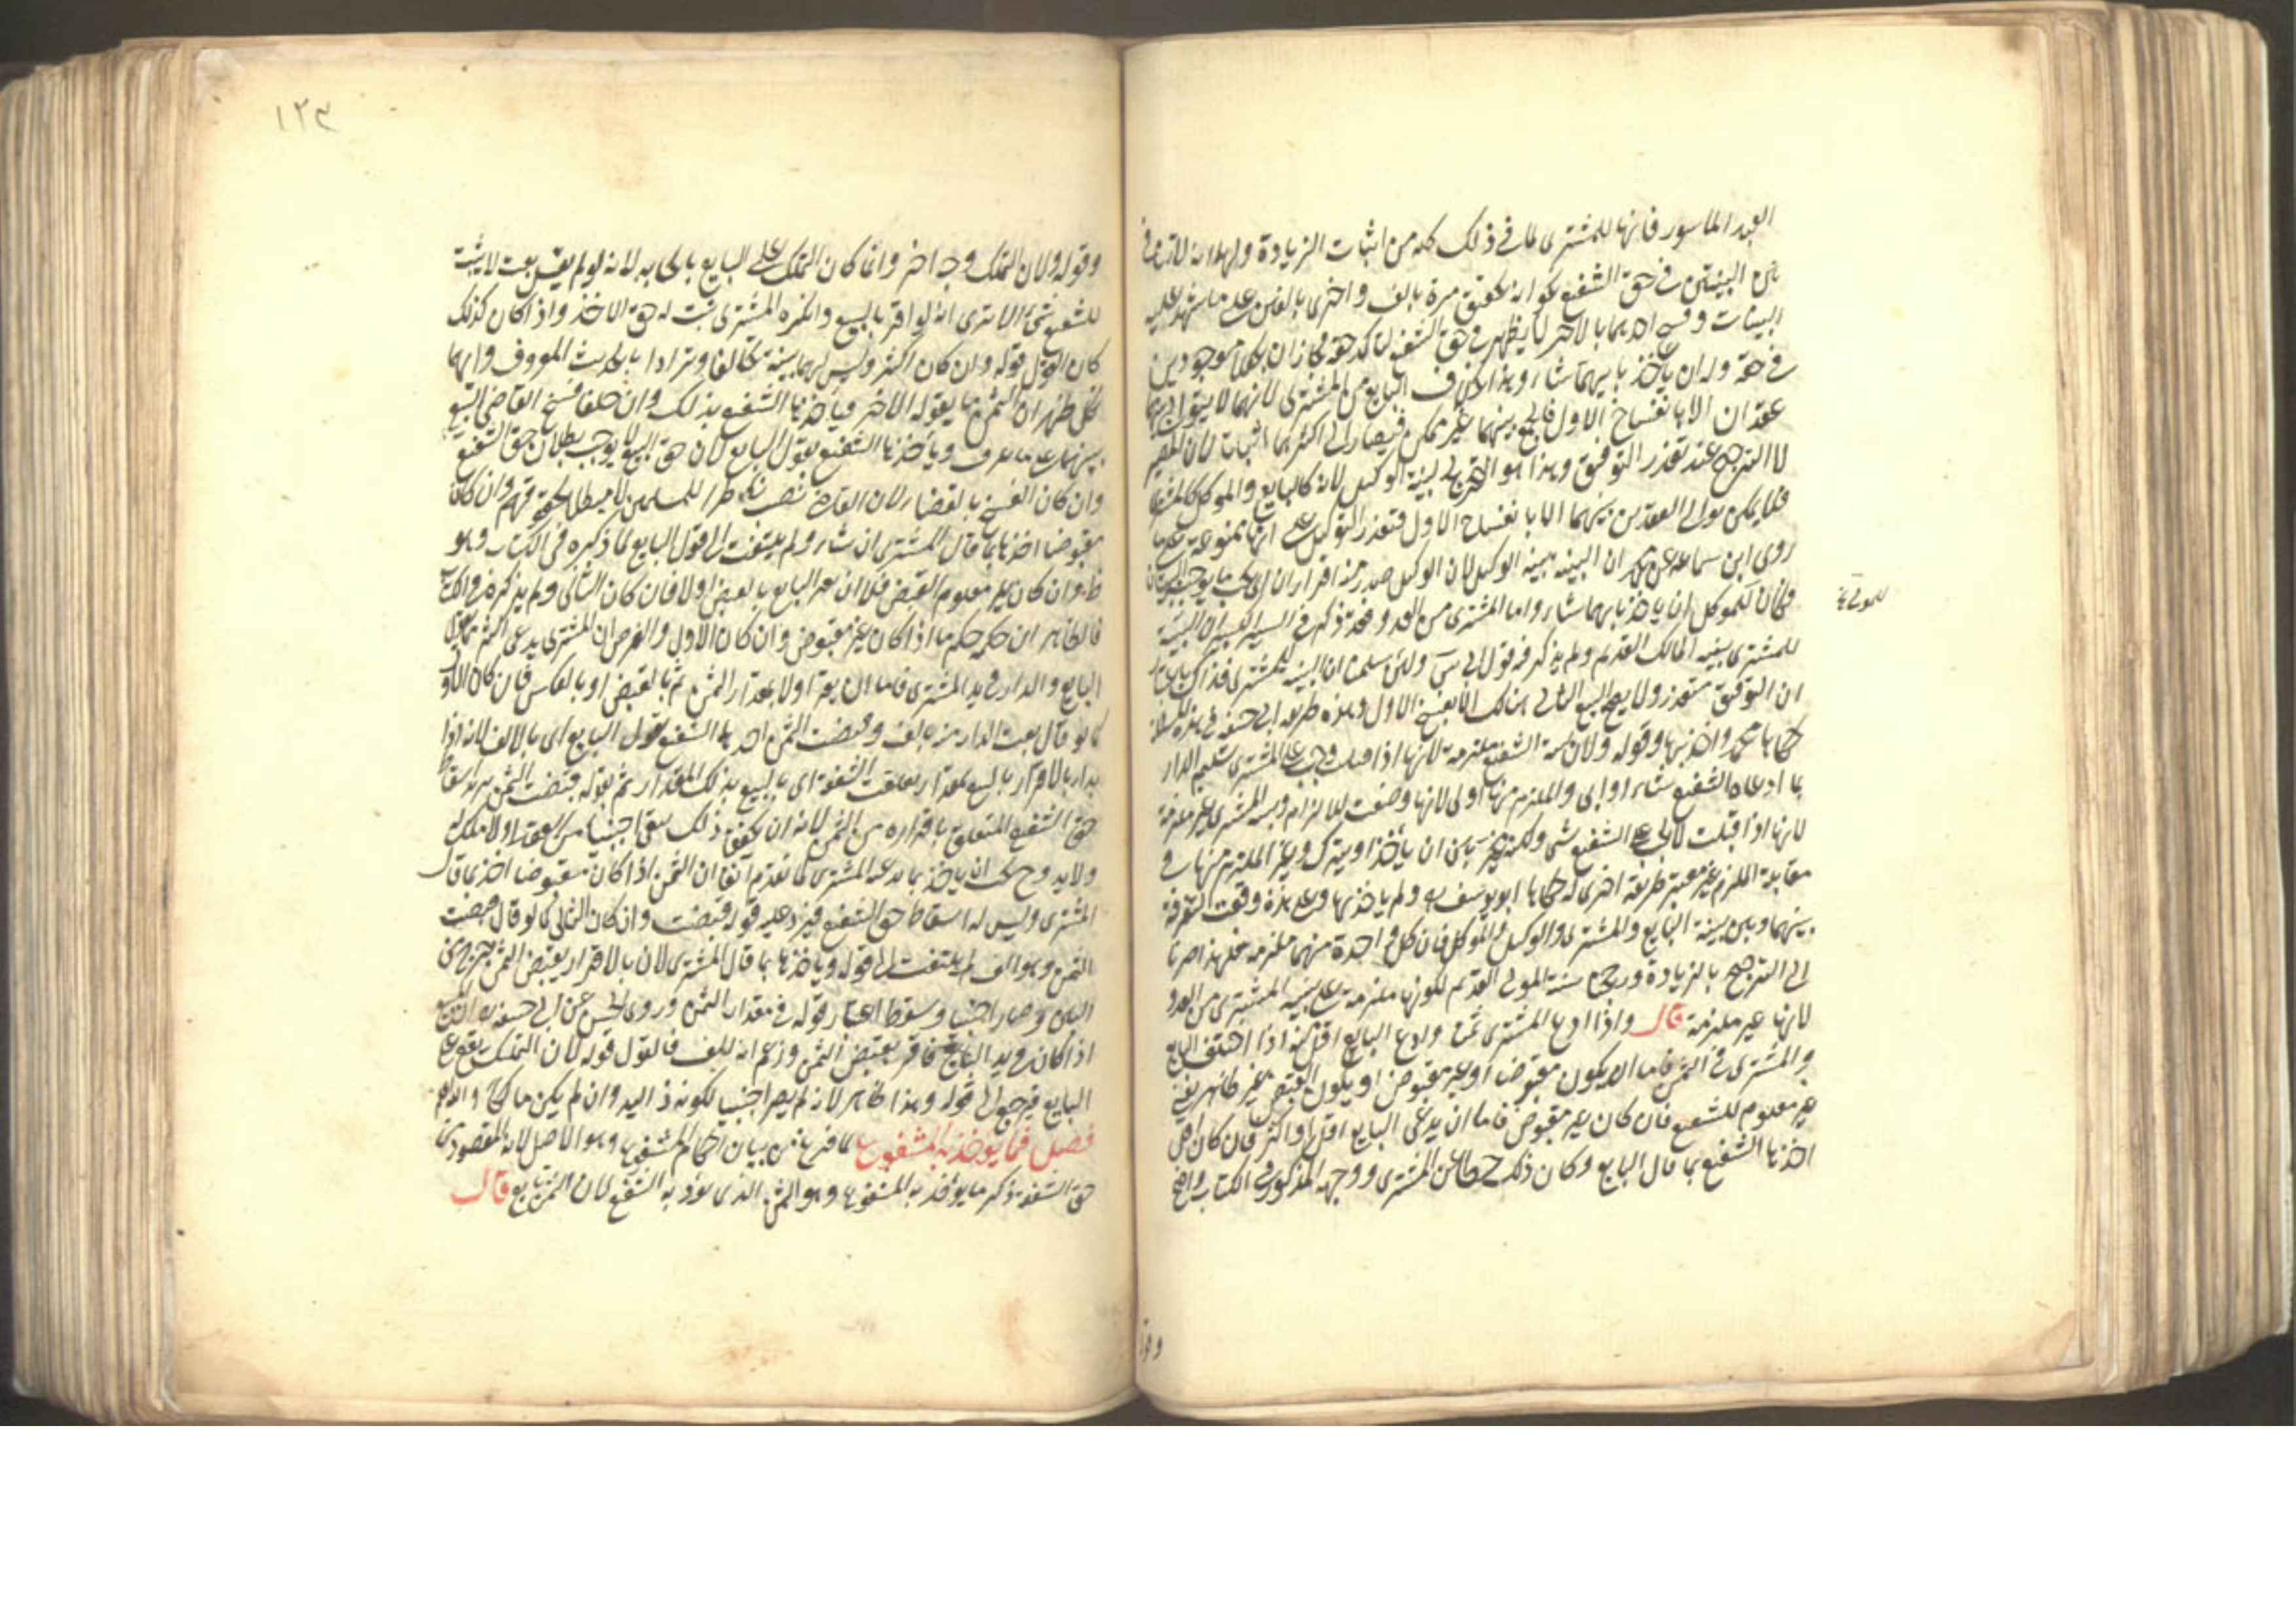 العبد المأسور فانها للمشترى لما فى ذلك كله من اثبات الزيادة ولهما انه لا تنافى
بين البينتين فى حق الشفيع لجواز تحقق مرة بالف واخرى بالفين على ما شهد عليه
البينات وفسخ احدهما بالآخر لا يظهر فى حق الشفيع لتاكد حقه فجاز ان يجعلا موجودين
فى حقه وله ان يأخذ بايهما شاء وهذا بخلاف البايع مع المشترى لانهما لا يتوالى بينهما
عقدان الا بانفساخ الاول فالجمع بينهما غير ممكن فيصار الى اكثرهما اثباتا لان المصير
لا الترجيح عند تعذر التوفيق وهذا هو التخريج لبينة الوكيل لانه كالبايع والموكل كالمشترى
فلا يمكن توالى العقدين بينهما الا بانفساخ الاول فتعذر التوفيق على انها ممنوعة على ما
روى ابن سماعة عن محمد ان البينة بينة الوكيل لان الوكيل صدر منه اقراران
فكان للموكل ان ياخذ بايهما شاء واما المشترى من العدو فقد ذكر فى السير الكبير ان البينة
للمشترى بينة المالك القديم ولم يذكر فيه قول ابى س ولئن سلمنا ان البينة للمشترى فذاك باعتبار
ان التوفيق متعذر ولا يصح البيع الثانى هنالك الا بفسخ الاول وهذه طريقة ابى حنيفة
حكاها محمد واخذ بها وقوله ولان بينة الشفيع ملزمة لانها اذا قبلت وجب على المشترى تسليم الدار
بما ادعاه الشفيع شاء او ابى والملزم منها اولى لانها وضعت للالزام وبينة المشترى غير ملزمة
لانها اذا قبلت لا يجب على الشفيع شئ ولكنه يتخير بين ان ياخذ او يترك وغير الملزم منها فى
مقابلة الملزم غير معتبر طريقة اخرى له حكاها ابو يوسف ولم ياخذ بها وعلى هذه وقعت التفرقة
بينهما وبين بينة البايع والمشترى والوكيل والموكل فان كل واحدة منهما ملزمة فلهذا صرنا
الى الترجيح بالزيادة ورجحنا بينة المولى القديم لكونها ملزمة على بينة المشترى من العدو
لانها غير ملزمة قال واذا ادعى المشترى ثمنا وادعى البايع اقل منه اذا اختلف البايع
والمشترى فى الثمن فاما ان يكون مقبوضا او غير مقبوض او يكون القبض غير ظاهر يعنى
غير معلوم للشفيع فان كان غير مقبوض فاما ان يدعى البايع اقل او اكثر فان كان اقل
اخذها الشفيع بما قال البايع وكان ذلك حطا عن المشترى ووجهه المذكور فى الكتاب واضح
وقو
١٢٣
وقوله ولان التملك وجه اخر وانما كان التملك على البايع بايجابه لانه لو لم يقل بعت لا يثبت
للشفيع شئ الا ترى انه لو اقر بالبيع وانكره المشترى ثبت له حق الاخذ واذا كان كذلك
كان القول قوله وان كان اكثر وليس لهما بينة تحالفا وترادا بالحديث المعروف وايهما
نكل ظهر ان الثمن ما يقوله الاخر وياخذها الشفيع بذلك وان حلفا فسخ القاضى البيع
بينهما على ما عرف وياخذها الشفيع بقول البايع لان فسخ البيع لا يوجب بطلان حق الشفيع
وان كان الفسخ بالقضاء لان القاضى نصب ناظرا للمسلمين لا مبطلا لحقوقهم وان كان
مقبوضا اخذها بما قال المشترى ان شاء ولم يلتفت الى قول البايع لما ذكره فى الكتاب وهو
ظ وان كان غير معلوم القبض فلا ان يقر البايع بالقبض اولا فان كان الثانى ولم يذكره فى الكتاب
فالظاهر ان حكمه حكم ما اذا كان غير مقبوض وان كان الاول والفرض ان المشترى يدعى اكثر مما يدعى
البايع والدار فى يد المشترى فاما ان يقر اولا بمقدار الثمن ثم بالقبض او بالعكس فان كان الاول
كما لو قال بعت الدار منه بالف وقبضت الثمن اخذها الشفيع بقول البايع اى بالالف لانه اذا
بدا بالاقرار بالبيع بمقدار تعلقت الشفعة اى بالبيع بذلك المقدار ثم بقوله قبضت الثمن يريد اسقاط
حق الشفيع المتعلق باقراره من الثمن لانه ان تحقق ذلك بقى اجنبيا من العقد اذ لا ملك له
ولا يد وح يجب ان ياخذ بما يدعيه المشترى لما تقدم آنفا ان الثمن اذا كان مقبوضا اخذ بما قال
المشترى وليس له اسقاط حق الشفيع فيرد عليه قوله قبضت وان كان الثانى كما لو قال قبضت
الثمن وهو الف لم يلتفت الى قوله وياخذها بما قال المشترى لان بالاقرار بقبض الثمن خرج من
البين وصار اجنبيا وسقط اعتبار قوله فى مقدار الثمن وروى الحسن عن ابى حنيفة ان المبيع
اذا كان فى يد البايع فاقر بقبض الثمن وزعم انه الف فالقول قوله لان التملك يقع على
البايع فيرجع الى قوله وهذا ظاهر لانه لم يصر اجنبيا لكونه ذا اليد وان لم يكن مالكا والله اعلم
فصل فيما يوخذ به المشفوع لما فرغ من بيان احكام المشفوع وهو الاصل لانه المقصود من
حق الشفعة ذكر ما يوخذ به المشفوع وهو الثمن الذى يؤديه الشفيع لان الثمن تابع قال